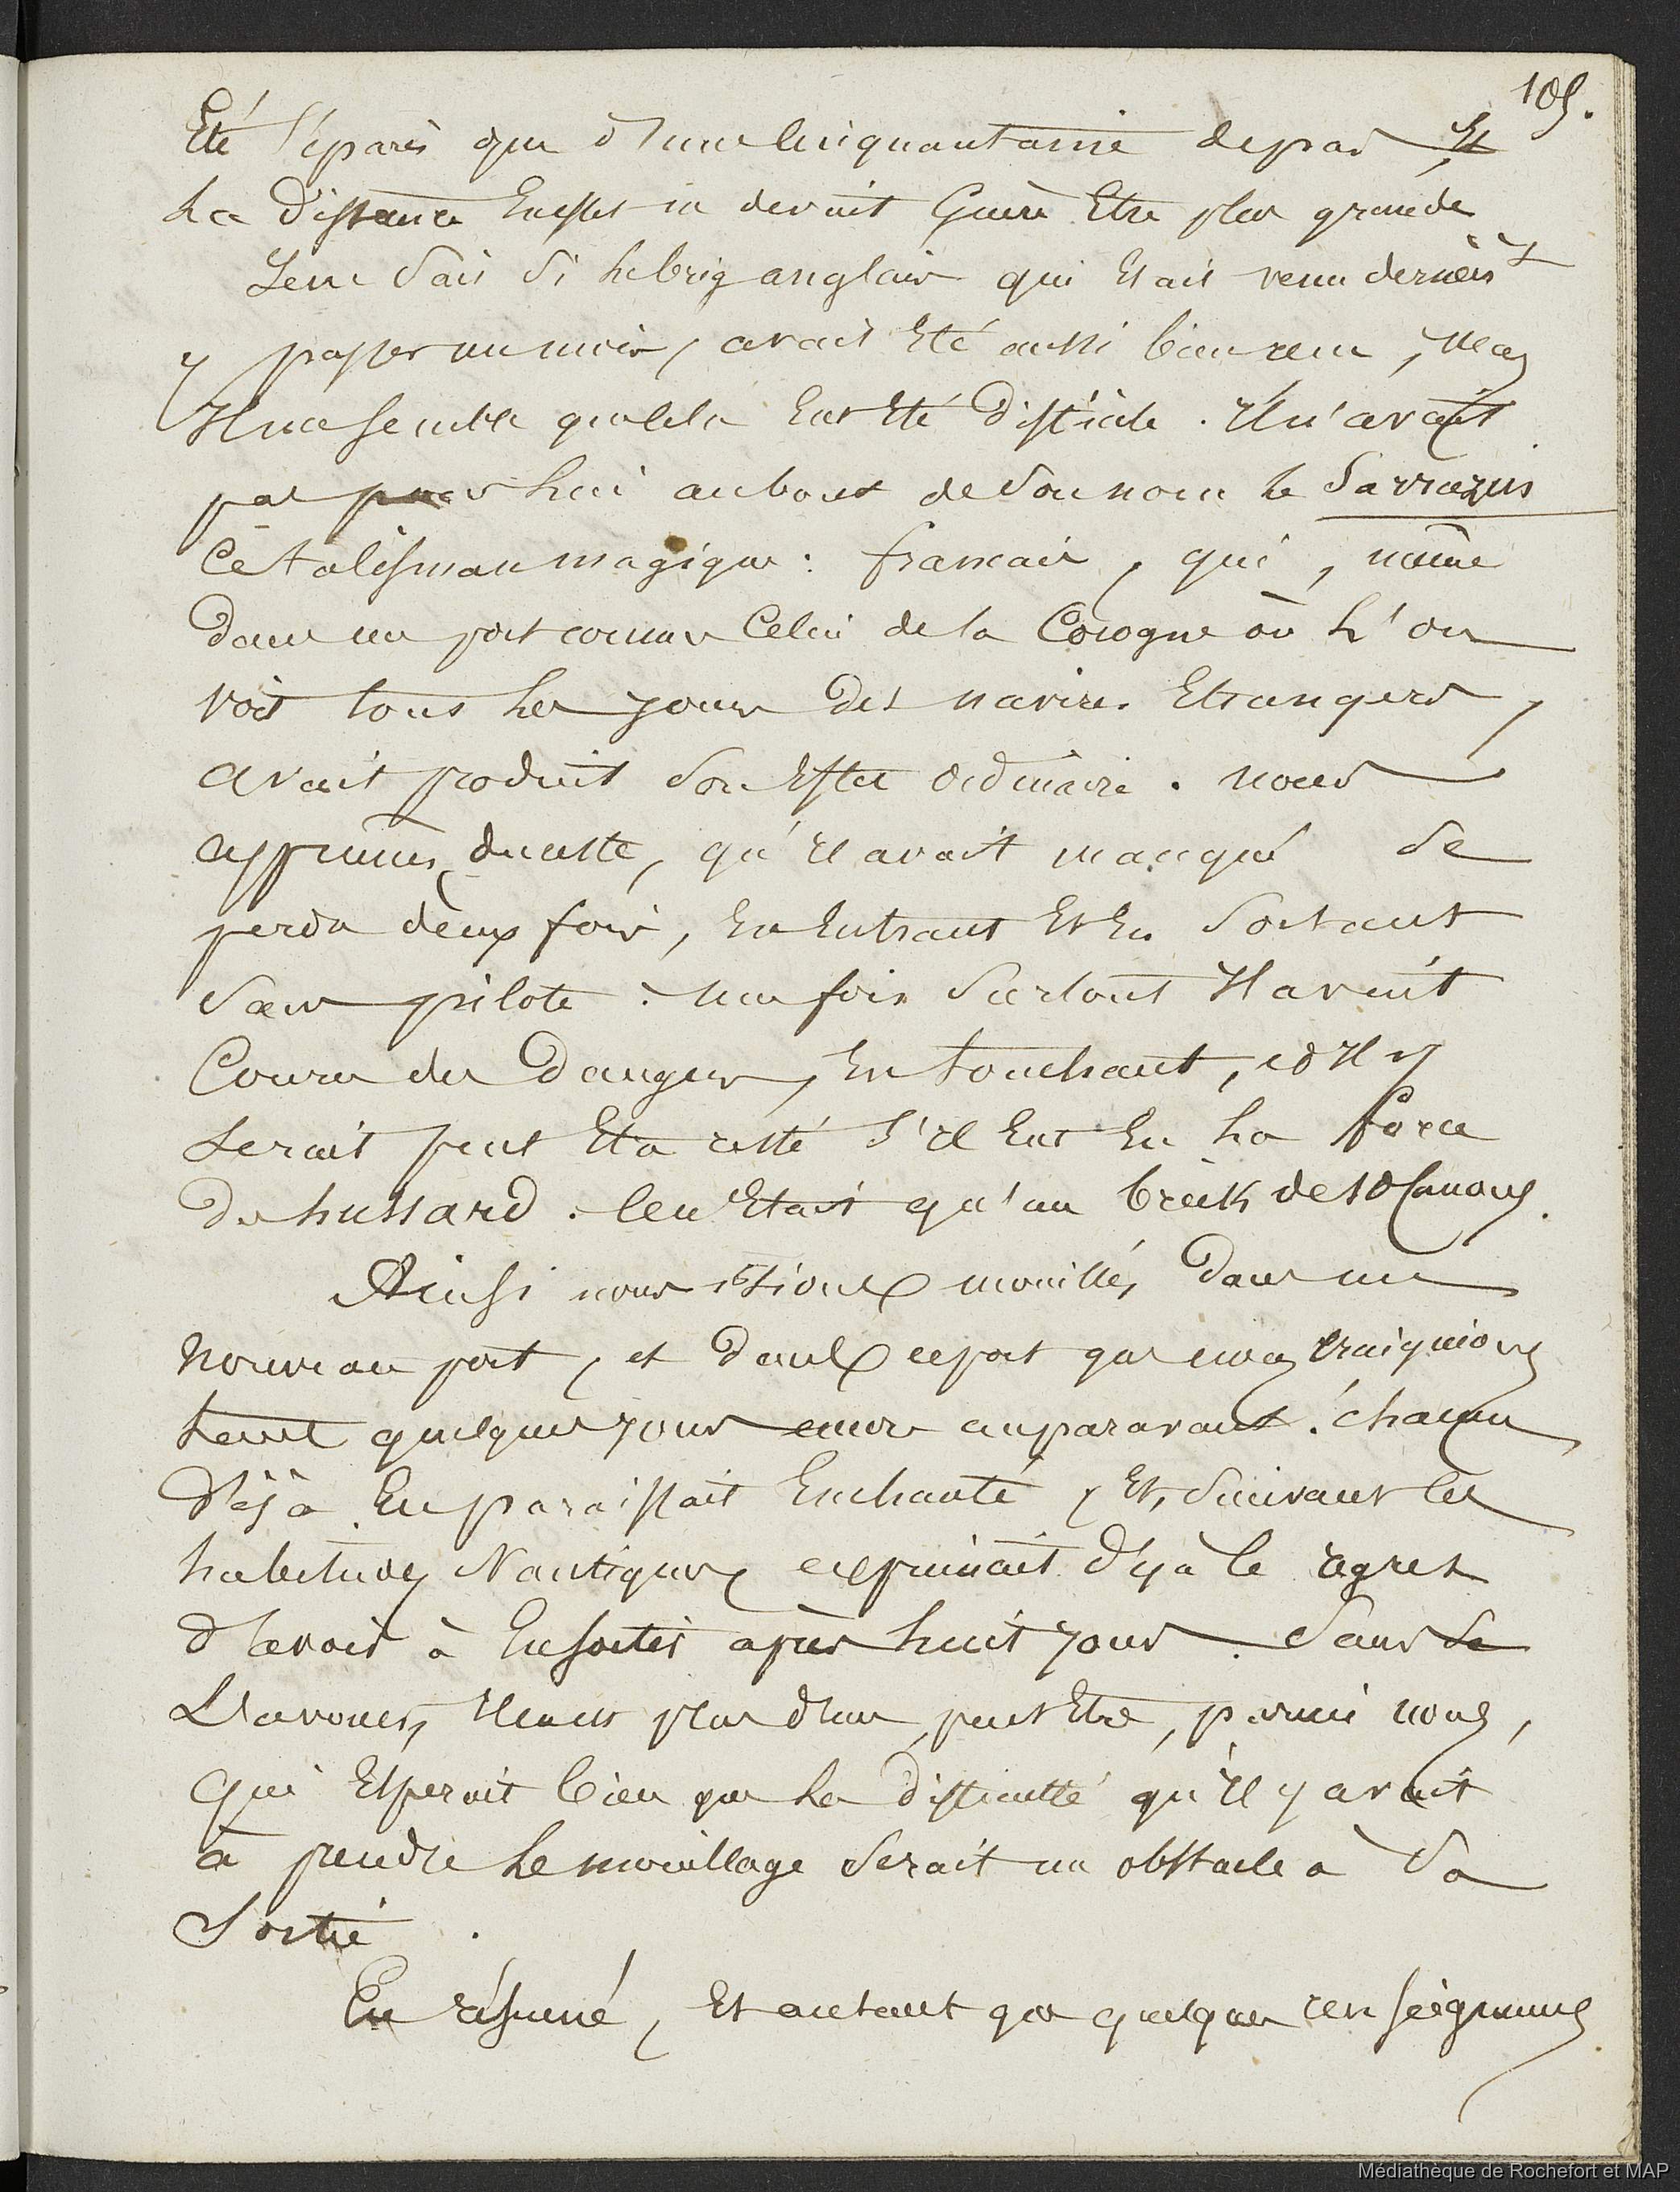 105.
Eté séparés que d'une cinquantaine de pas Et
La distance En effet ne devait Guère Etre plus grande
Je ne sais si le brig anglais qui Etait venu dernièr^t
y passer un mois, avait Eté aussi bien reçu, mais
Il me semble que cela Eut Eté difficile. Il n'avait
pas lui au bout de son nom le Sarrazin
Ce talisman magique : français, qui, même
dans un port comme Celui de la Corogne où L'on
voit tous les jours des navires Etrangers,
avait produit son Effet ordinaire. nous
apprimes, du reste, qu'il avait manqué se
perdre deux fois, En Entrant Et En Sortant
sans pilote : une fois surtout Il avait
Couru des dangers, En touchant, et Il y
serait peut Etre resté s'il Eut Eu la force
du hussard. Ce n'Etait qu'un brick de 18 Canons.
Ainsi nous Etions mouillés dans un
nouveau port, et dans ce port que nous Craignions
tant quelques jours encore auparavant. chacun
déjà En paraissait Enchanté, Et, Suivant les
habitudes Nautiques, exprimait déjà le regret
d'avoir à En sortir après huit jours. Sans se
L'avouer, Il en est plus d'un, peut Etre, parmi nous,
qui Espérait bien que la difficulté qu'Il y avait
à prendre Le mouillage serait un obstacle à sa
Sortie.
En résumé, Et autant que quelques renseignemens
Médiathèque de Rochefort et MAP